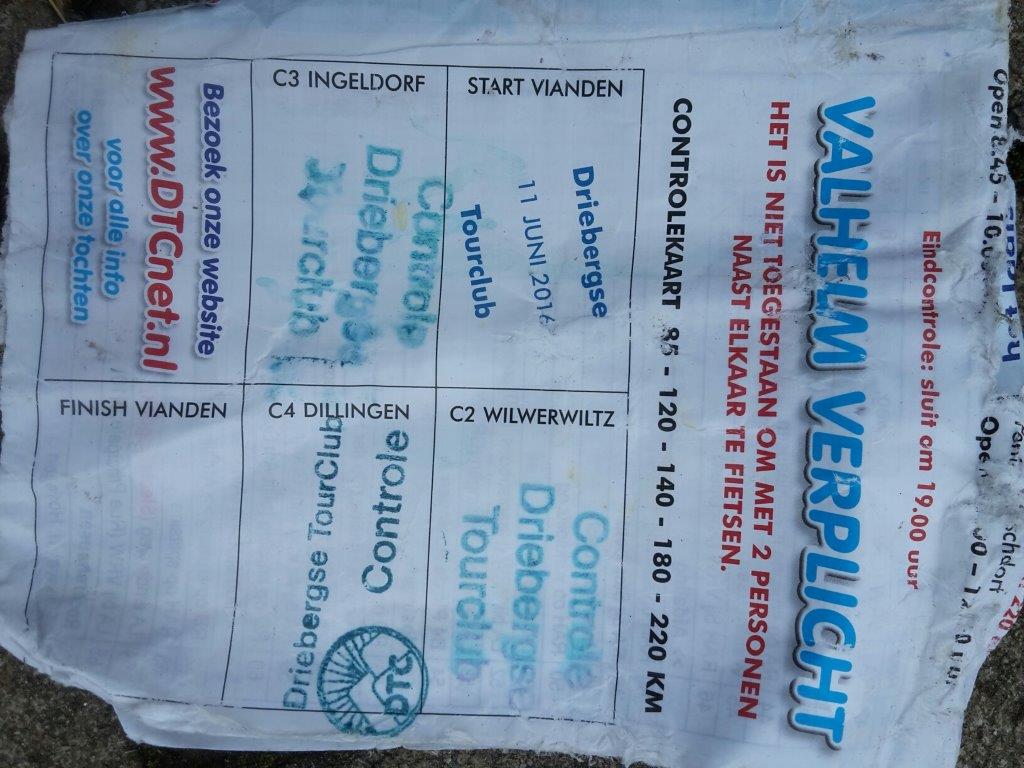 Open 8.45 - 10.0
Open
Eindcontrole: sluit om 19.00 uur
VALHELM VERPLICHT
HET IS NIET TOEGESTAAN OM MET 2 PERSONEN
NAAST ELKAAR TE FIETSEN.
CONTROLEKAART 85 - 120 - 140 - 180 - 220 KM
START VIANDEN
Driebergse
11 JUNI 2016
Tourclub
C2 WILWERWILTZ
Controle
Driebergse
Tourclub
C3 INGELDORF
Controle
Driebergse
Tourclub
C4 DILLINGEN
Controle
Driebergse TourClub
DTC
Bezoek onze website
www.DTCnet.nl
voor alle info
over onze tochten
FINISH VIANDEN